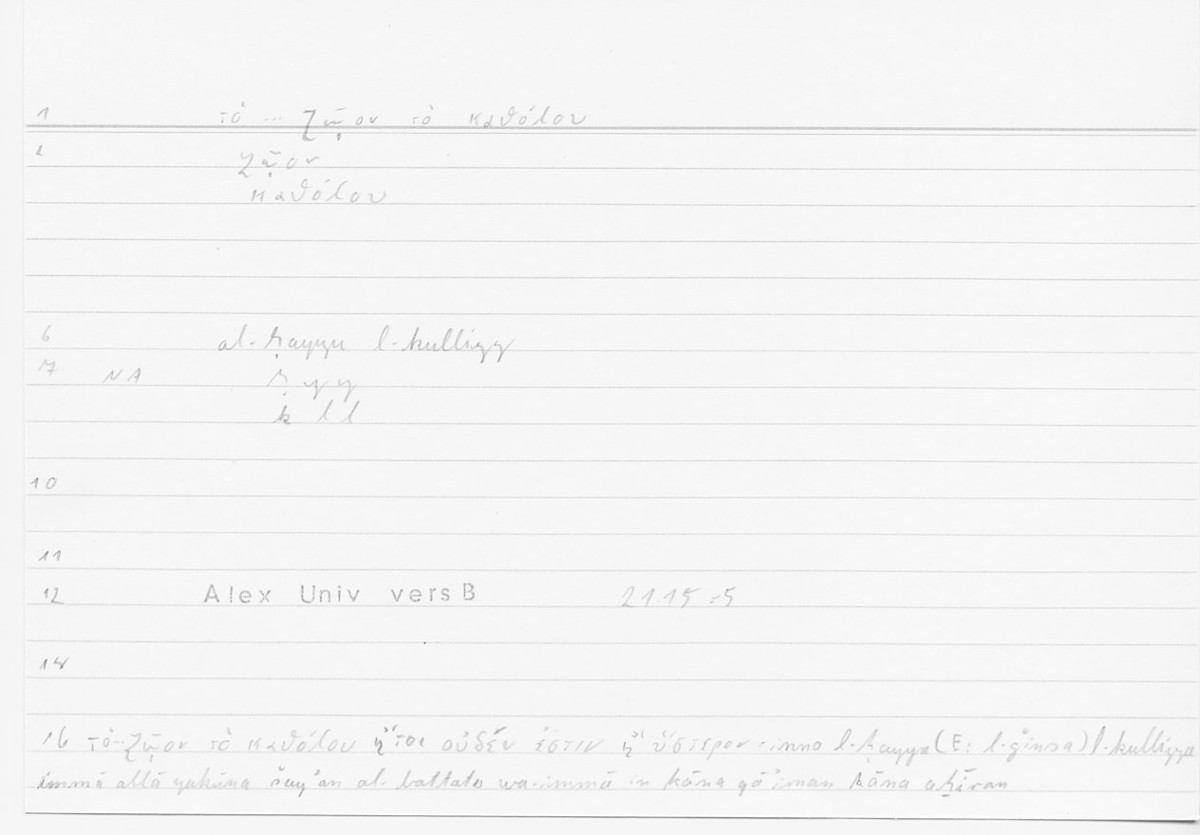 1 τὸ ... ζῷον τὸ καθόλου
2 ζῷον
καθόλου
6 al-ḥayyu l-kulliyy
7 NA ḥ y y
k l l
10
11
12 Alex Univ vers B 21.15 =5
14
16 τὸ..ζῷον τὸ καθόλου ἤτοι οὐδέν ἐστιν ἢ ὕστερον = inna l-ḥayya (E: l-ǧinsa) l-kulliyya
immā allā yakūna šayʾan al-battata wa-immā in kāna qāʾiman kāna aḫīran